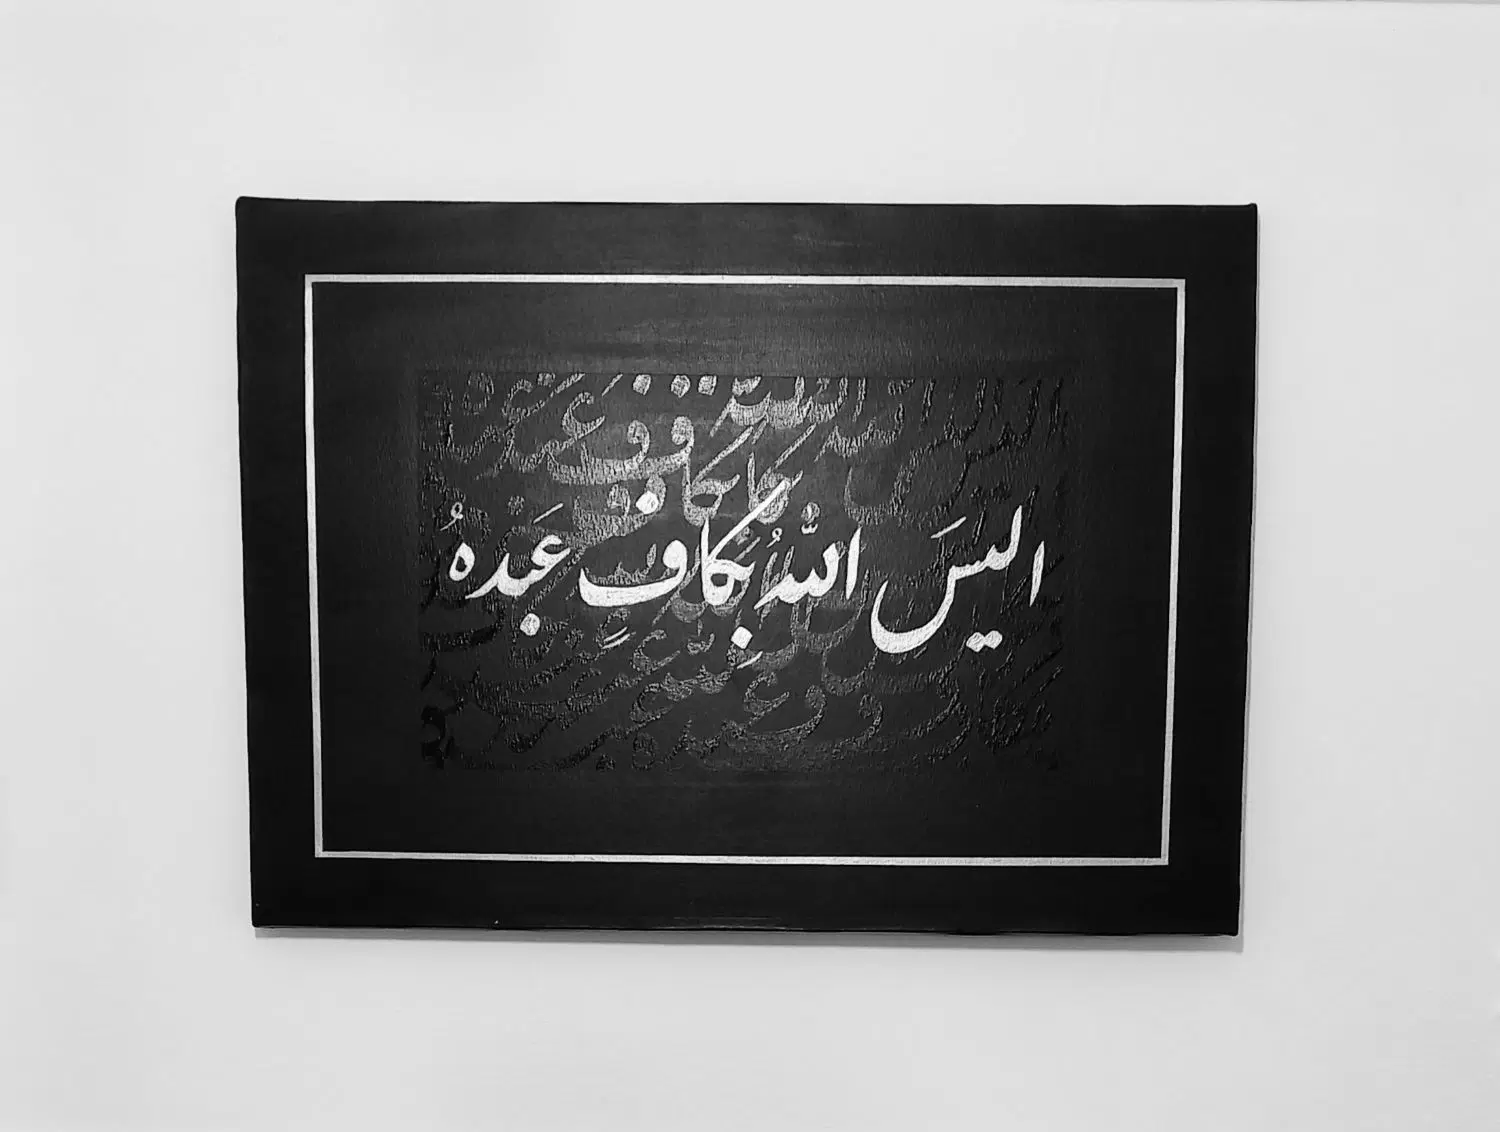 اليسَ اللّٰهُ بِكافٍ عَبدهُ